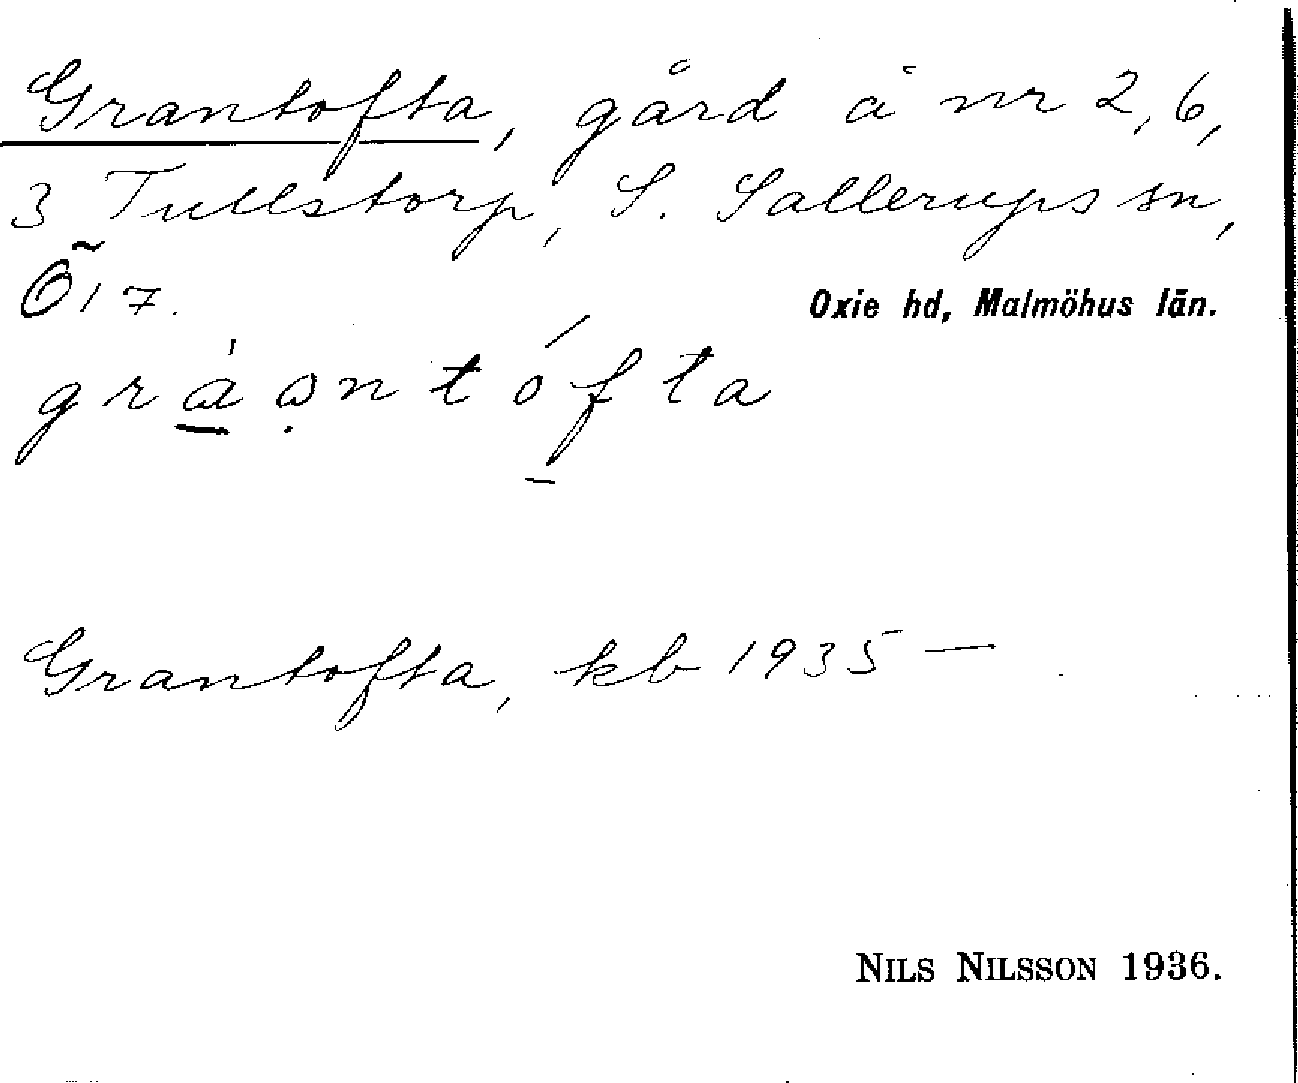 Grantofta, gård å nr 2, 6,
3 Tullstorp, S. Sallerups sn,
Õ 17.
Oxie hd, Malmöhus län.
Grantofta, kb 1935 —
NILS NILSSON 1936.